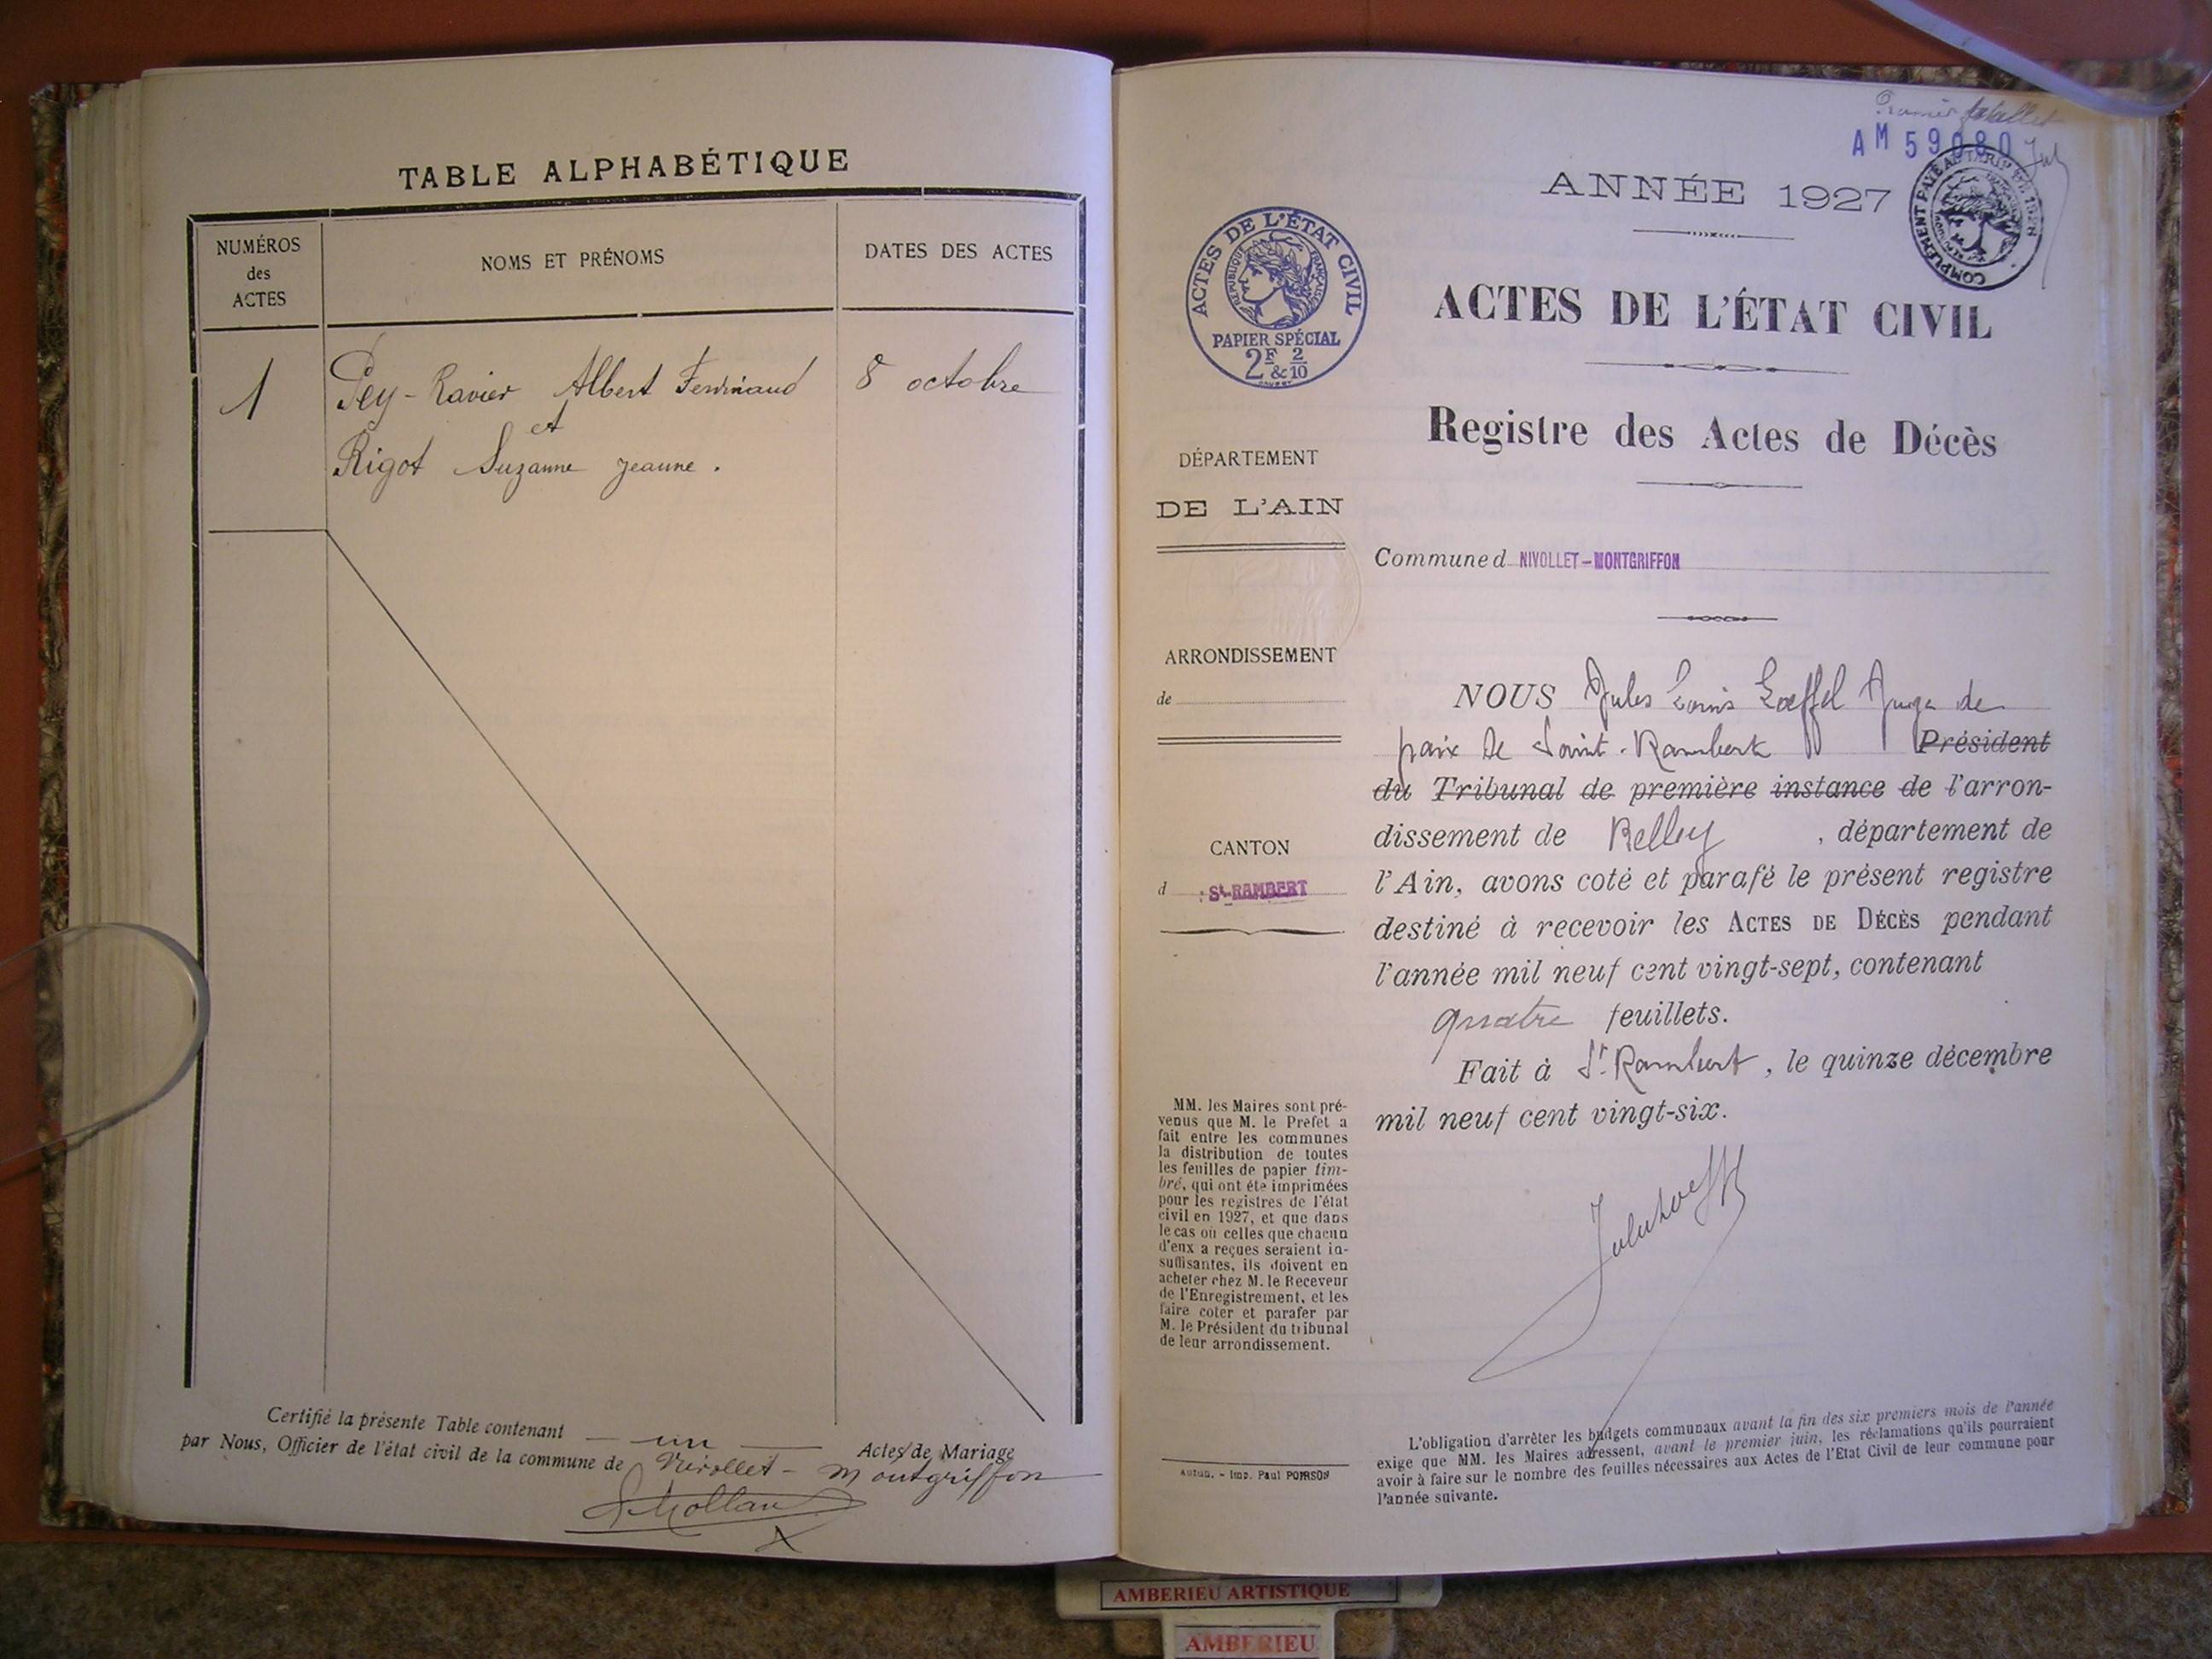 TABLE ALPHABÉTIQUE
NUMÉROS
des
ACTES
NOMS ET PRÉNOMS
DATES DES ACTES
1
Pey-Ravier Albert Ferdinand
8 octobre
et
Rigot Suzanne Jeanne.
Certifié la présente Table contenant — un — Actes de Mariage
par Nous, Officier de l'état civil de la commune de Nivollet-Montgriffon
Premier feuillet
AM 59080
Jul
COMPLÉMENT PAYÉ AU TARIF DE 1928
ANNÉE 1927
ACTES DE L'ÉTAT CIVIL
RÉPUBLIQUE FRANÇAISE
PAPIER SPÉCIAL
2F & 2/10
ACTES DE L'ÉTAT CIVIL
Registre des Actes de Décès
DÉPARTEMENT
DE L'AIN
Commune d NIVOLLET-MONTGRIFFON
ARRONDISSEMENT
de
CANTON
d St-RAMBERT
NOUS Jules Louis Loeffel Juge de
paix de Saint-Rambert Président
du Tribunal de première instance de l'arron-
dissement de Belley, département de
l'Ain, avons coté et parafé le présent registre
destiné à recevoir les ACTES DE DÉCÈS pendant
l'année mil neuf cent vingt-sept, contenant
quatre feuillets.
Fait à St. Rambert, le quinze décembre
mil neuf cent vingt-six.
MM. les Maires sont pré-
venus que M. le Prefet a
fait entre les communes
la distribution de toutes
les feuilles de papier tim-
bré, qui ont été imprimées
pour les registres de l'état
civil en 1927, et que dans
le cas où celles que chacun
d'eux a reçues seraient in-
suffisantes, ils doivent en
acheter chez M. le Receveur
de l'Enregistrement, et les
faire coter et parafer par
M. le Président du tribunal
de leur arrondissement.
Autun. - Imp. Paul POIRSON
L'obligation d'arrêter les budgets communaux avant la fin des six premiers mois de l'année
exige que MM. les Maires adressent, avant le premier juin, les réclamations qu'ils pourraient
avoir à faire sur le nombre des feuilles nécessaires aux Actes de l'Etat Civil de leur commune pour
l'année suivante.
AMBERIEU ARTISTIQUE
AMBERIEU